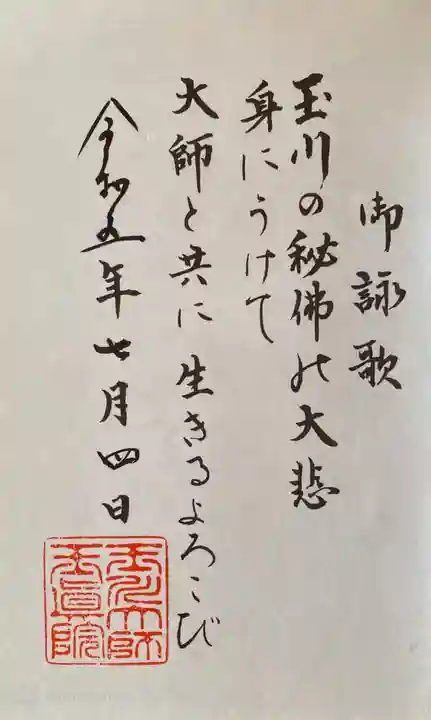 御詠歌
玉川の秘佛の大悲
身にうけて
大師と共に生きるよろこび
令和五年七月四日
玉川大師
玉眞院